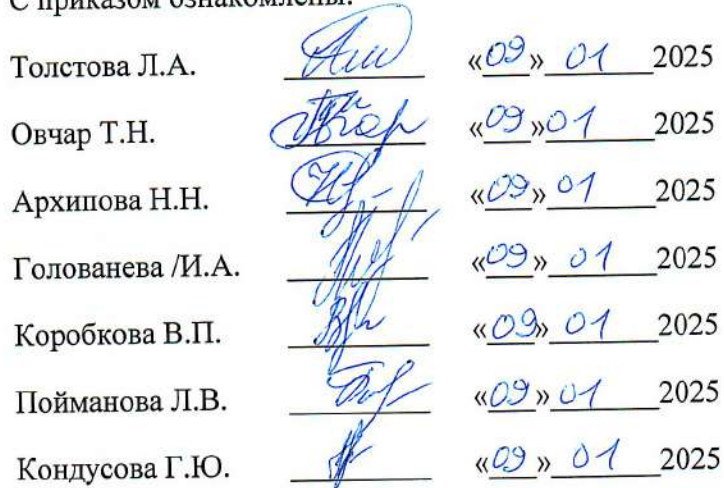 С приказом ознакомлены:
Толстова Л.А. «09» 01 2025
Овчар Т.Н. «09» 01 2025
Архипова Н.Н. «09» 01 2025
Голованева /И.А. «09» 01 2025
Коробкова В.П. «09» 01 2025
Пойманова Л.В. «09» 01 2025
Кондусова Г.Ю. «09» 01 2025